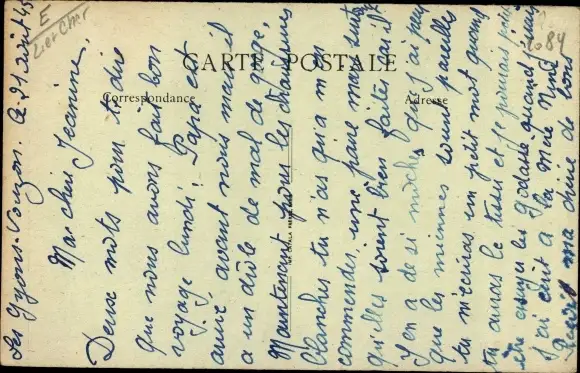 E
Loir Cher
1084
CARTE POSTALE
Correspondance
Adresse
Les Gyons. Vouzon. le 21 août 45
Ma chère Jeanine,
Deux mots pour te dire
que nous avons fait bon
voyage lundi. Papa est
arrivé avant nous mais il
a un drôle de mal de gorge.
Maintenant pour les chaussures
blanches tu n'as qu'à m'en
commender une paire mais surtout
qu'elles soient bien faites car il
y en a de si moches que j'ai peur
que les miennes sont pareilles
tu m'écriras un petit mot quand
tu auras le tissu et je pourais
être essayer les godasses quand
J'ai écrit à la Mère
ma chérie de tous